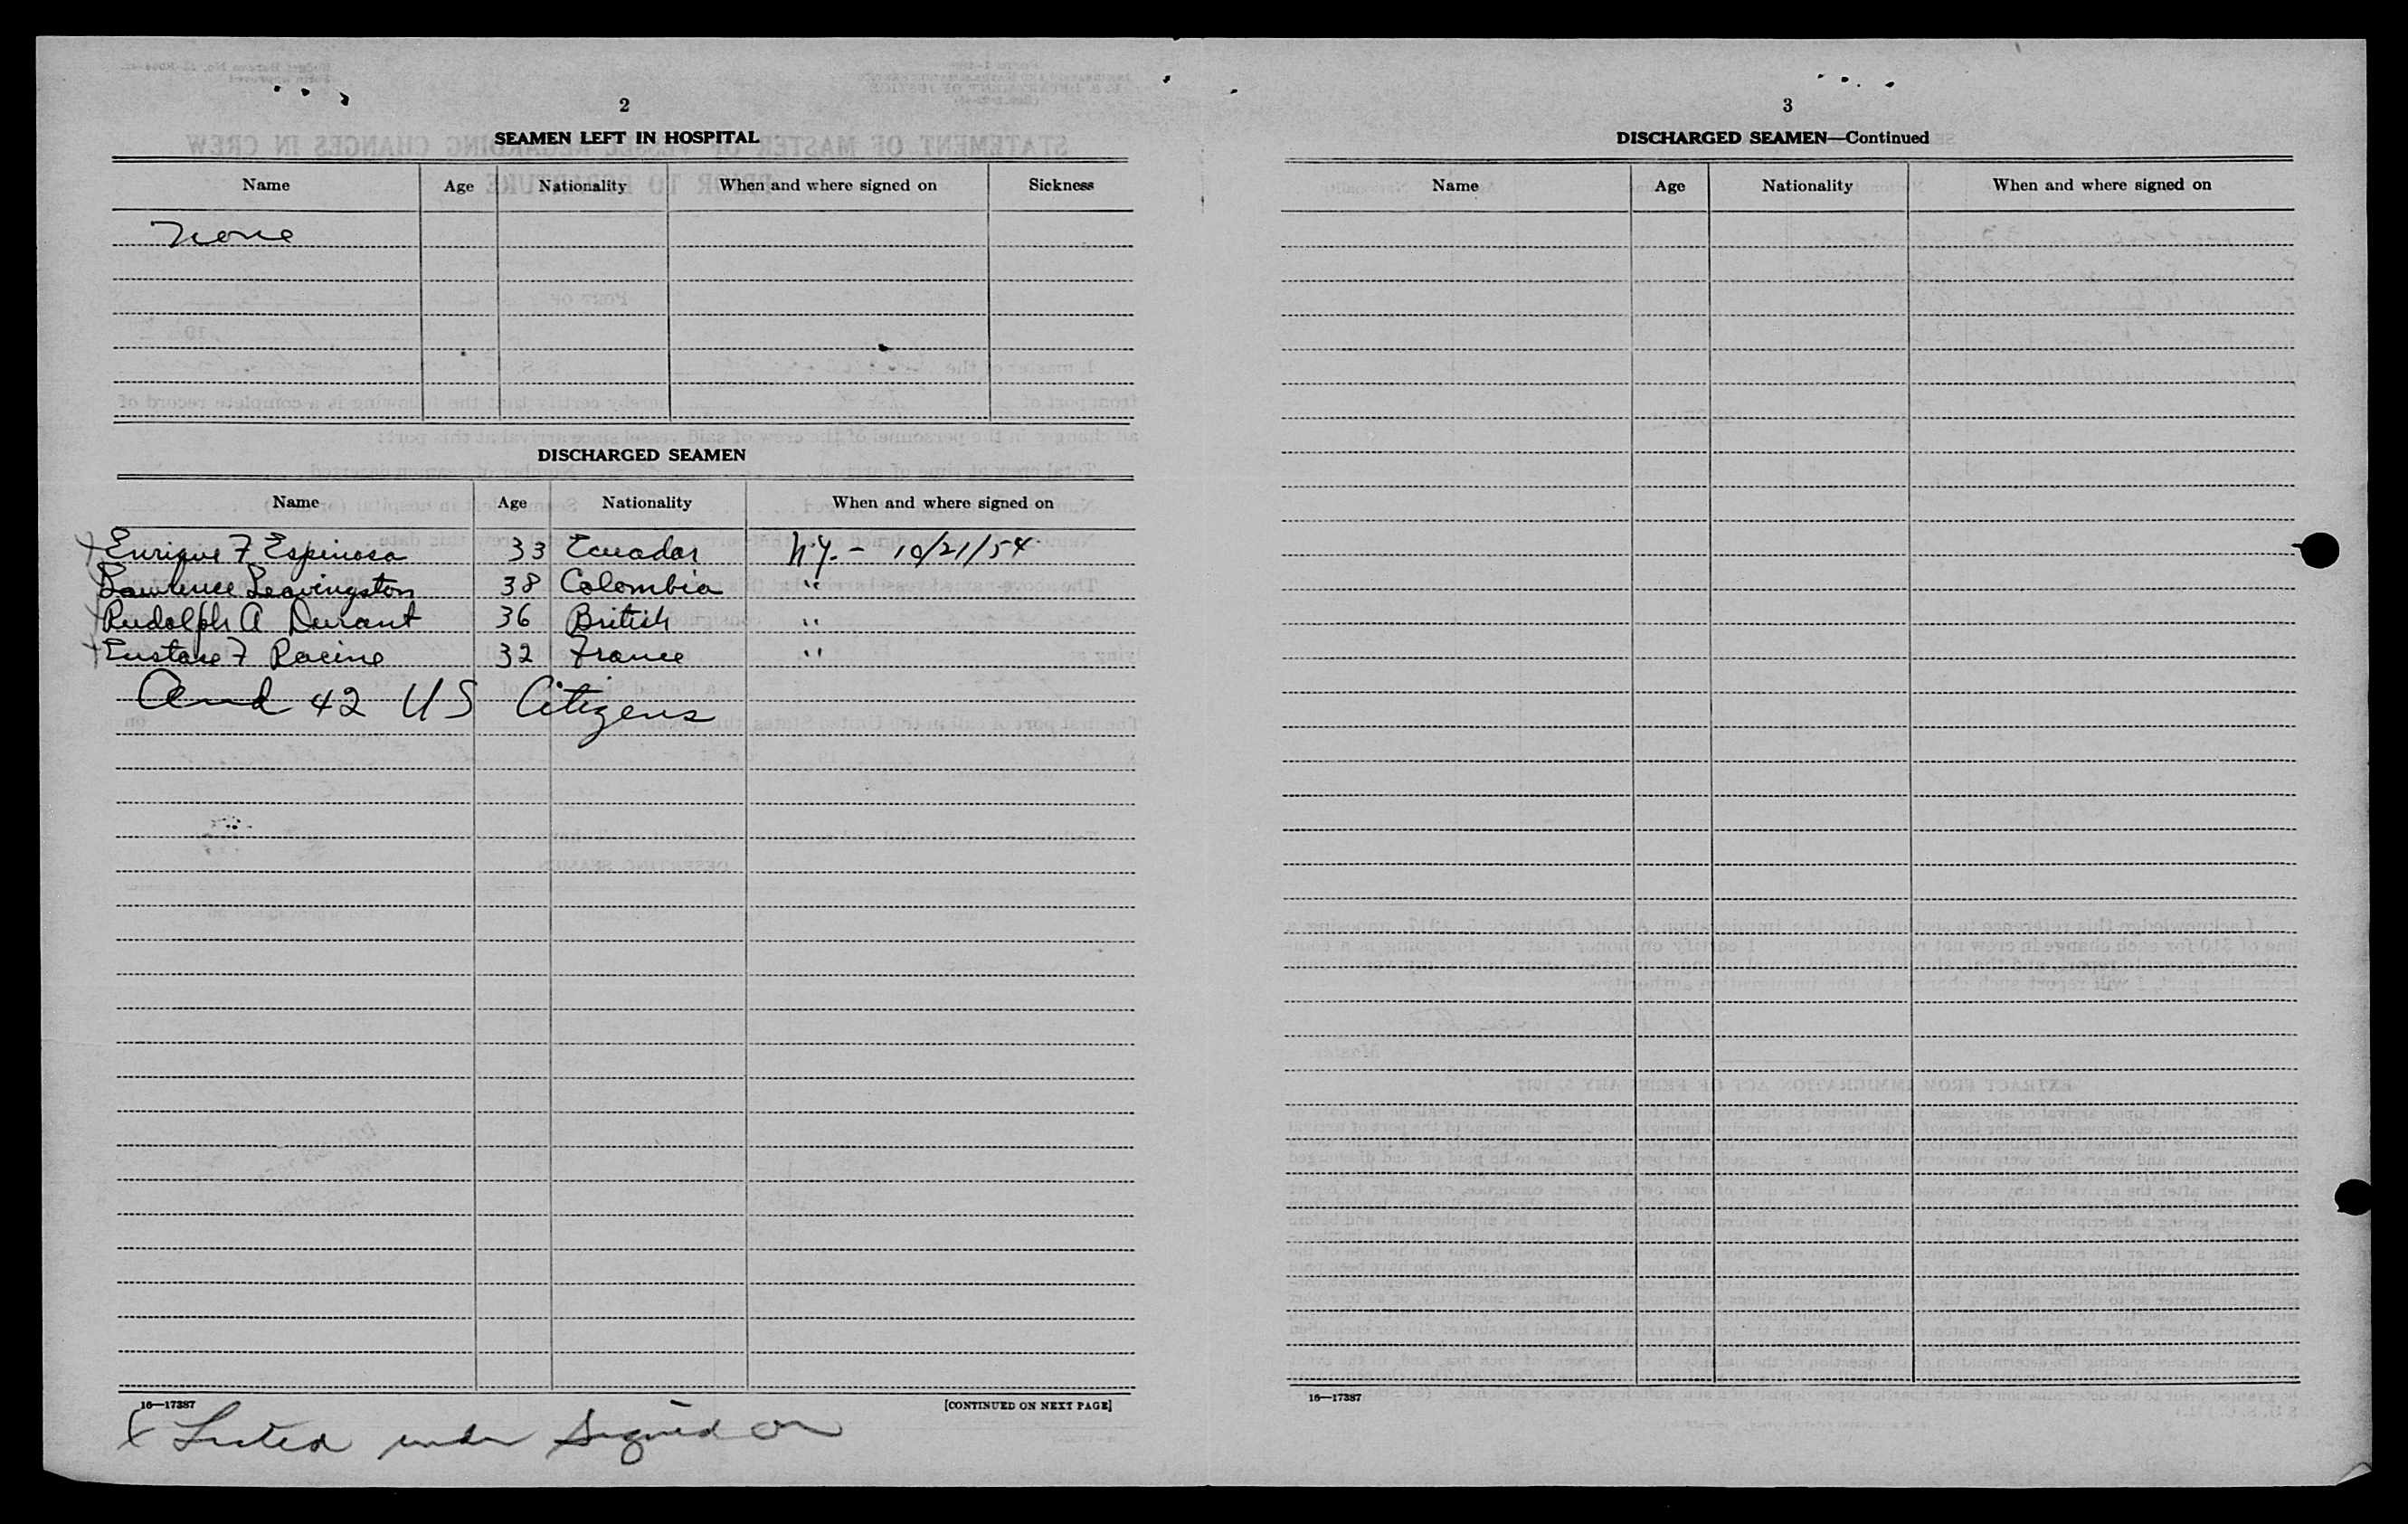 2
SEAMEN LEFT IN HOSPITAL
Name Age Nationality When and where signed on Sickness
None
DISCHARGED SEAMEN
Name Age Nationality When and where signed on
Enrique F Espinosa 33 Ecuador N.Y. - 10/21/54
Lawrence Leavingston 38 Colombia "
Rudolph A Durant 36 British "
Eustace F Racine 32 France "
And 42 US Citizens
16—17387 [CONTINUED ON NEXT PAGE]
x Listed under Signed on
3
DISCHARGED SEAMEN—Continued
Name Age Nationality When and where signed on
16—17387